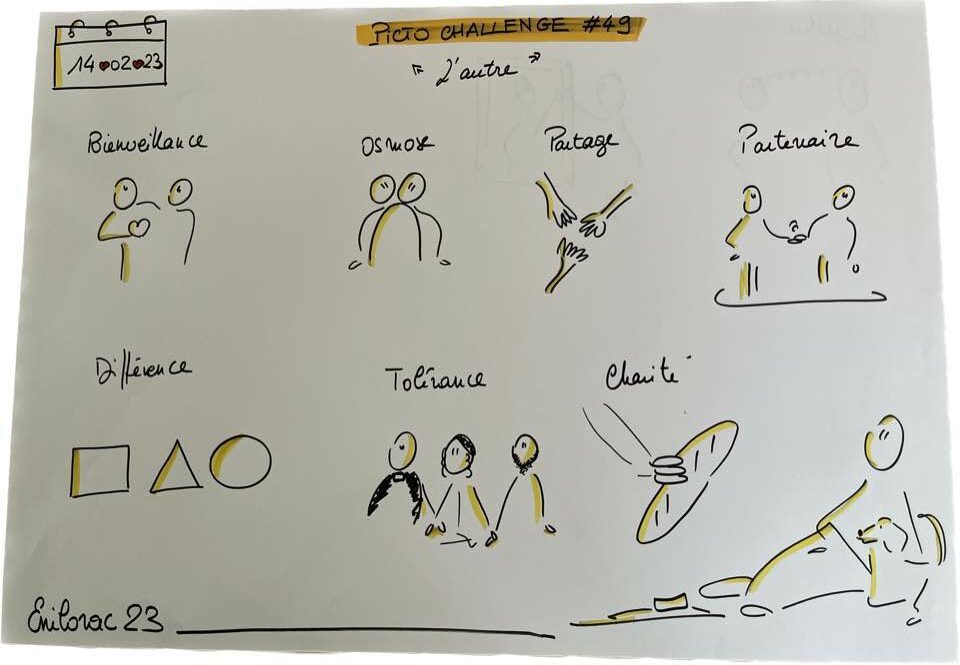 PICTO CHALLENGE #49
14♥02♥23
"L'autre"
Bienveillance
Osmose
Partage
Partenaire
Différence
Tolérance
Charité
Enilorac 23